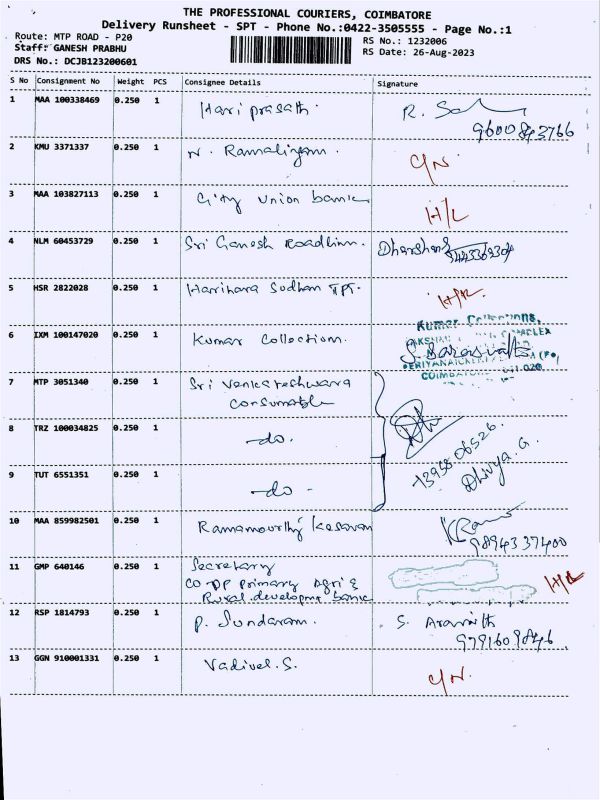 THE PROFESSIONAL COURIERS, COIMBATORE
Delivery Runsheet - SPT - Phone No.:0422-3505555 - Page No.:1
Route: MTP ROAD - P20
Staff: GANESH PRABHU
DRS No.: DCJB123200601
RS No.: 1232006
RS Date: 26-Aug-2023
S No Consignment No Weight PCS Consignee Details Signature
1 MAA 100338469 0.250 1 Hari prasath. R.
9600843766
2 KMU 3371337 0.250 1 N. Ramalingam. C/N.
3 MAA 103827113 0.250 1 City Union bank H/L
4 NLM 60453729 0.250 1 Sri Ganesh Roadlinn. Dharshan
5 HSR 2822028 0.250 1 Harihara Sudhan TPT.
6 IXM 100147020 0.250 1 Kumar Collection.
Kumar
S. Saraswathi
COIMBATORE
7 MTP 3051340 0.250 1 Sri Venkateshwara
Consumable
8 TRZ 100034825 0.250 1 -do.
13958 06526.
9 TUT 6551351 0.250 1 -do-
Dhivya. G.
10 MAA 859982501 0.250 1 Ramamourthy Kesavan
9894337400
11 GMP 640146 0.250 1 Secretary
CO-OP primary Agri &
Rural.developmt bank
H/L
12 RSP 1814793 0.250 1 P. Sundaram. S. Aravinth
9791609846
13 GGN 910001331 0.250 1 Vadivel.S. C/N.